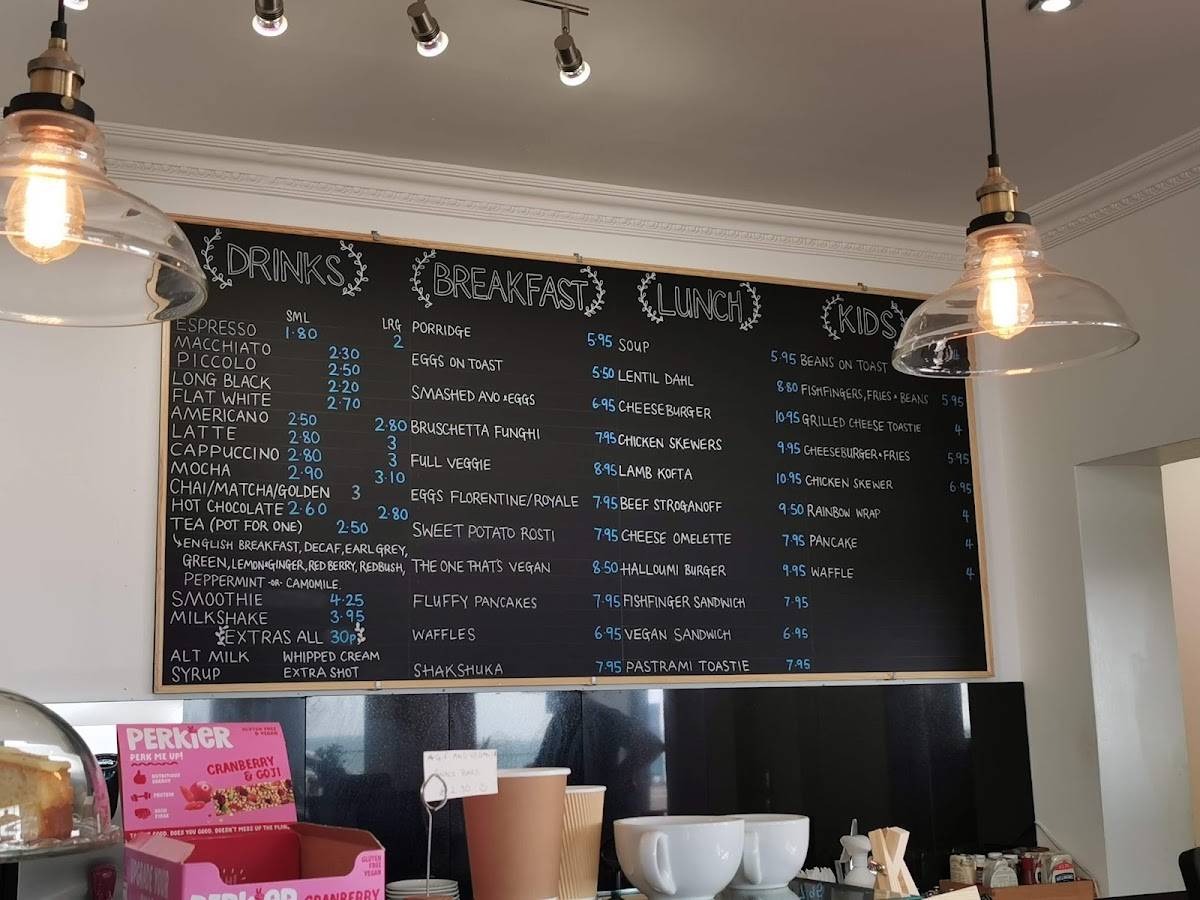 DRINKS
SML LRG
ESPRESSO 1.80 2
MACCHIATO 2.30
PICCOLO 2.50
LONG BLACK 2.20
FLAT WHITE 2.70
AMERICANO 2.50 2.80
LATTE 2.80 3
CAPPUCCINO 2.80 3
MOCHA 2.90 3.10
CHAI/MATCHA/GOLDEN 3
HOT CHOCOLATE 2.60 2.80
TEA (POT FOR ONE) 2.50
ENGLISH BREAKFAST, DECAF, EARL GREY,
GREEN, LEMON & GINGER, RED BERRY, REDBUSH,
PEPPERMINT -OR- CAMOMILE.
SMOOTHIE 4.25
MILKSHAKE 3.95
EXTRAS ALL 30p
ALT MILK WHIPPED CREAM
SYRUP EXTRA SHOT
BREAKFAST
PORRIDGE 5.95
EGGS ON TOAST 5.50
SMASHED AVO & EGGS 6.95
BRUSCHETTA FUNGHI 7.95
FULL VEGGIE 8.95
EGGS FLORENTINE/ROYALE 7.95
SWEET POTATO ROSTI 7.95
THE ONE THAT'S VEGAN 8.50
FLUFFY PANCAKES 7.95
WAFFLES 6.95
SHAKSHUKA 7.95
LUNCH
SOUP 5.95
LENTIL DAHL 8.80
CHEESEBURGER 10.95
CHICKEN SKEWERS 9.95
LAMB KOFTA 10.95
BEEF STROGANOFF 9.50
CHEESE OMELETTE 7.95
HALLOUMI BURGER 9.95
FISHFINGER SANDWICH 7.95
VEGAN SANDWICH 6.95
PASTRAMI TOASTIE 7.95
KIDS
BEANS ON TOAST 4
FISHFINGERS, FRIES & BEANS 5.95
GRILLED CHEESE TOASTIE 4
CHEESEBURGER & FRIES 5.95
CHICKEN SKEWER 6.95
RAINBOW WRAP 4
PANCAKE 4
WAFFLE 4
PERKIER
PERK ME UP!
GLUTEN FREE
& VEGAN
CRANBERRY
& GOJI
NUTRITIOUS
ENERGY
PROTEIN
HIGH
FIBRE
FOOD. DOES YOU GOOD. DOESN'T MESS UP THE
PERKIER
CRANBERRY
GLUTEN
FREE
VEGAN
SNACK BARS